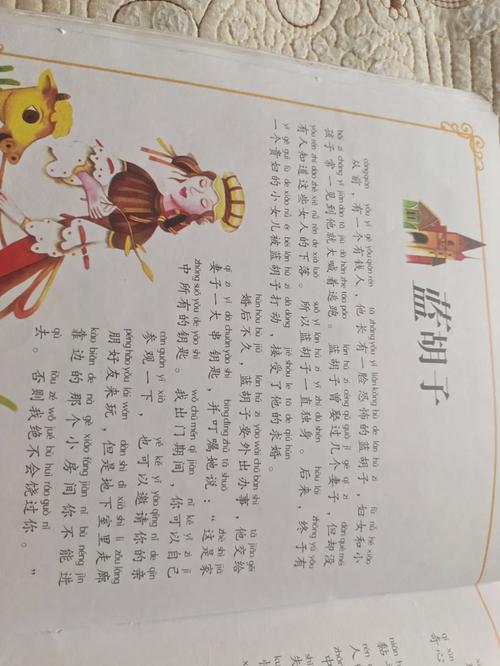 蓝胡子
cóngqián yǒu yī gè yǒuqián rén tā zhǎng yǒu yī liǎn kǒng bù de lán hú zi fù nǚ hé xiǎo
从前，有一个有钱人，他长有一脸恐怖的蓝胡子，妇女和小
hái zi cháng yī jiàn dào tā jiù dà hǎn zhe táo pǎo lán hú zi céng qǔ guò jǐ gè qī zi dàn què méi
孩子常一见到他就大喊着逃跑。蓝胡子曾娶过几个妻子，但却没
yǒu rén zhī dào zhè xiē nǚ rén de xià luò suǒ yǐ lán hú zi yī zhí dú shēn hòu lái zhōng yú yǒu
有人知道这些女人的下落。所以蓝胡子一直独身。后来，终于有
yī gè guì fù de xiǎo nǚ ér bèi lán hú zi dǎ dòng jiē shòu le tā de qiú hūn
一个贵妇的小女儿被蓝胡子打动，接受了他的求婚。
hūn hòu bù jiǔ lán hú zi yào wài chū bàn shì tā jiāo gěi
婚后不久，蓝胡子要外出办事，他交给
qī zi yī dà chuàn yào shi bìng dīng zhǔ tā shuō zhè shì jiā
妻子一大串钥匙，并叮嘱她说：“这是家
zhōng suǒ yǒu de yào shi wǒ chū mén qī jiān nǐ kě yǐ zì jǐ
中所有的钥匙。我出门期间，你可以自己
cān guān yī xià yě kě yǐ yāo qǐng nǐ de qīn
参观一下，也可以邀请你的亲
péng hǎo yǒu lái wán dàn shì dì xià shì lǐ zǒu láng
朋好友来玩，但是地下室里走廊
kào biān de nà gè xiǎo fáng jiān nǐ bù néng jìn
靠边的那个小房间你不能进
qù fǒu zé wǒ jué bù huì ráo guò nǐ
去。否则我绝不会饶过你。”